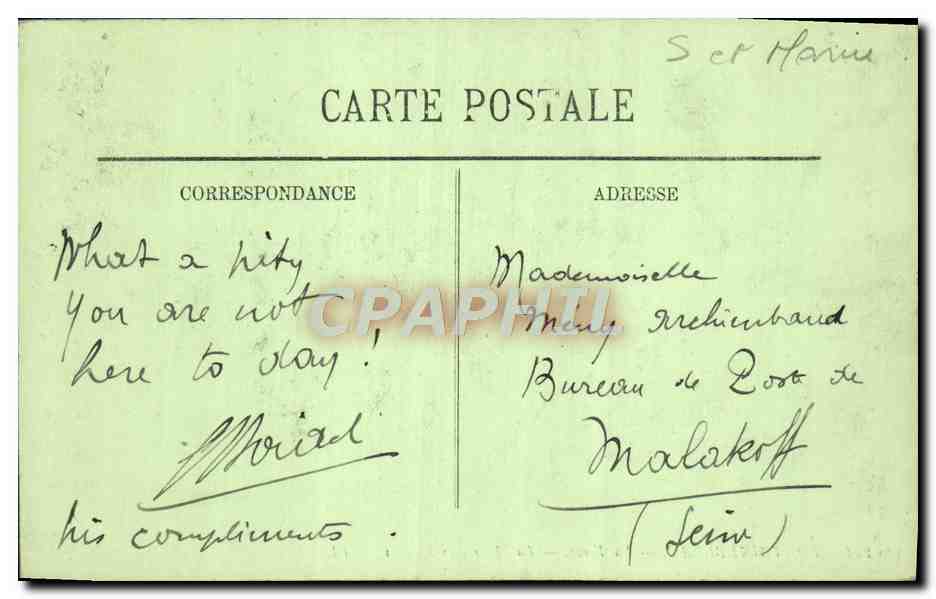 S et Marne
CARTE POSTALE
CORRESPONDANCE
ADRESSE
What a pity
you are not
here to day!
his compliments.
Mademoiselle
Archimbaud
Bureau de Poste de
Malakoff
(Seine)
CPAPHIL